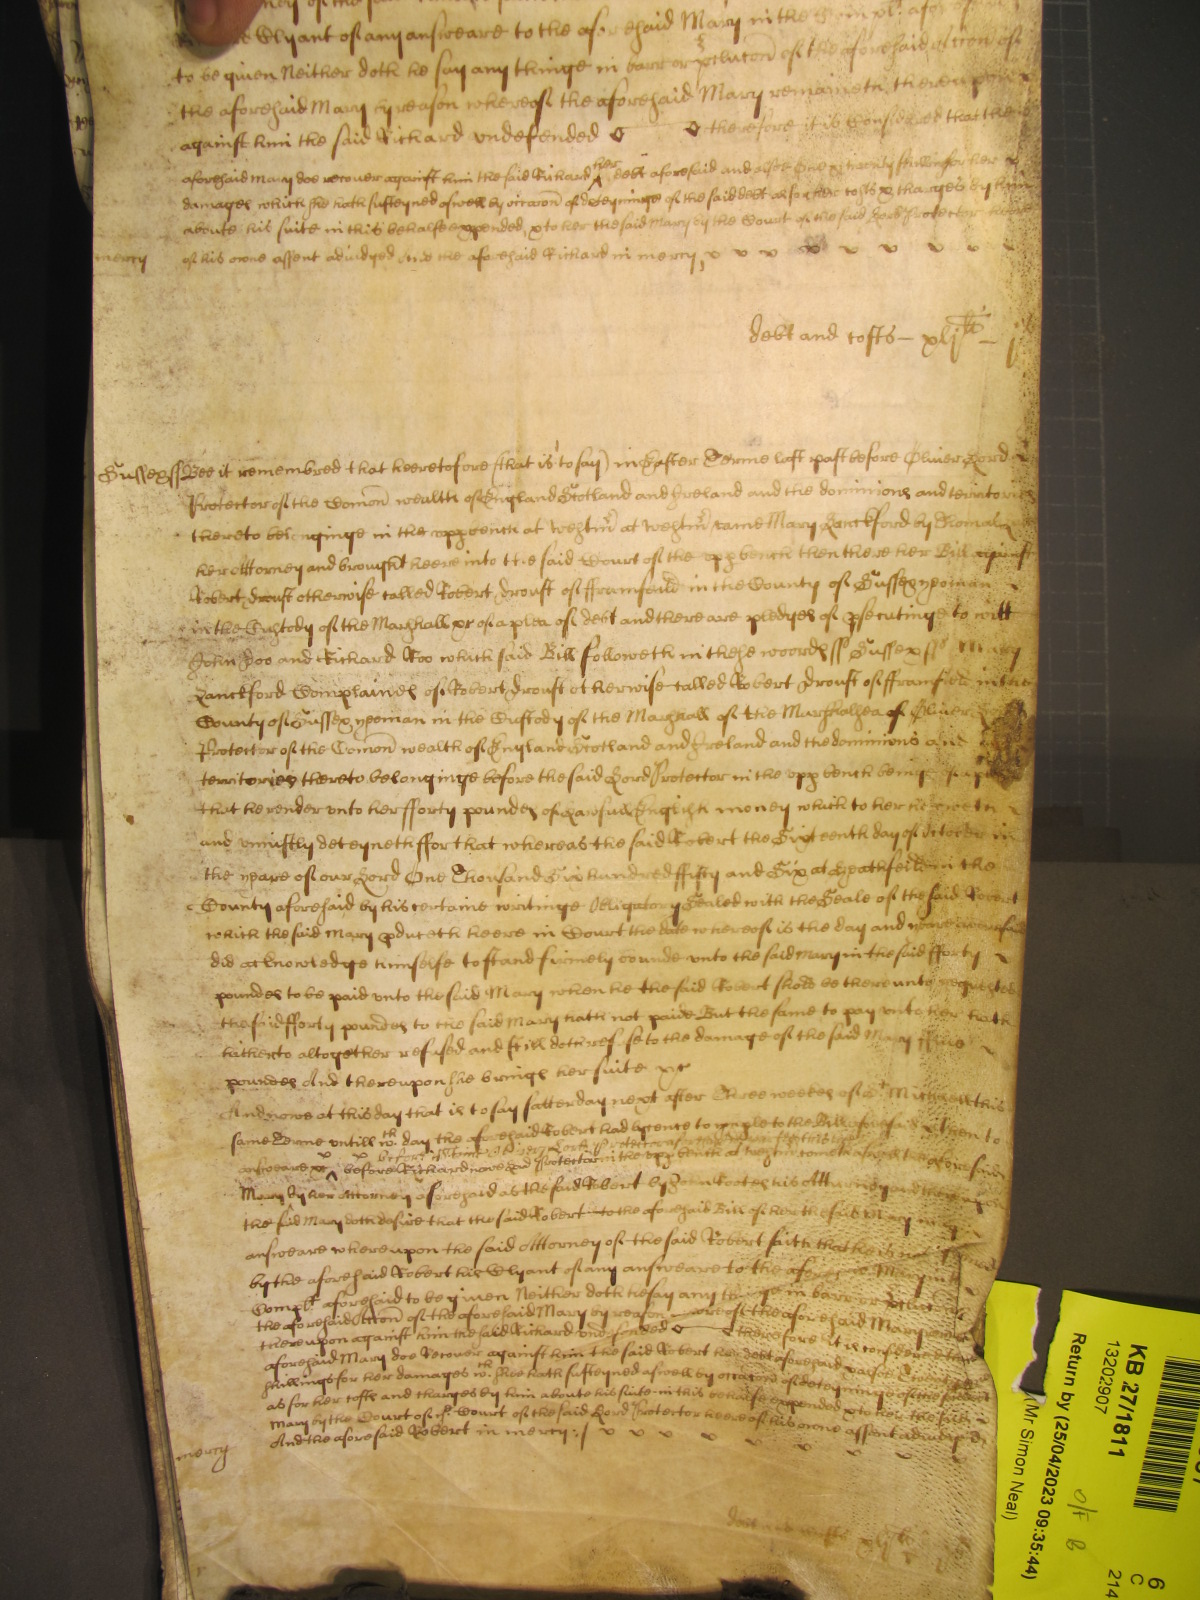 Clyant of any answeare to the aforesaid Mary in the Compl: afor
to be given Neither doth he say any thinge in barr or of the aforesaid accon of
the aforesaid Mary by reason whereof the aforesaid Mary remaineth thereupon
against him the said Richard undefended therefore it is Considered that the
aforesaid Mary doe recover against him the said Richard her debt aforesaid and alsoe One & twenty shillings for her
damages which she hath susteyned aswell by occacon of deteyninge of the said debt as for her costs & charges by him
aboute his suite in this behalfe expended, & to her the said Mary by the Court of the said Lord Protector heere
mercy of his owne assent adiudged And the aforesaid Richard in mercy
debt and costs – xlj li – js
Sussex ss Bee it remembred that heeretofore (that is to say) in Easter Terme last past before Oliver Lord
Protector of the Comon wealth of England Scotland and Ireland and the dominions and territories
thereto belonginge in the upp bench at Westmr at Westmr came Mary Lanckford by Thomas
her Attorney and brought heere into the said Court of the upp bench then there her Bill against
Robert Drouft otherwise called Robert Drouft of fframfeild in the County of Sussex yeoman
in the Custody of the Marshall &c of a plea of debt and there are pledges of psecutinge to witt
John Doo and Richard Roo which said Bill followeth in these woords ss Sussex ss Mary
Lanckford Complaines of Robert Drouft otherwise called Robert Drouft of fframfeild in the
County of Sussex yeoman in the Custody of the Marshall of the Marshalsea of Oliver Lord
Protector of the Comon wealth of England Scotland and Ireland and the dominions and
territories thereto belonginge before the said Lord Protector in the upp bench beinge of a plea
that he render unto her fforty poundes of Lawfull English money which to her he oweth
and uniustly deteyneth ffor that whereas the said Robert the Sixteenth day of October in
the yeare of our Lord One Thousand Six hundred fifty and Six at Heathfeild in the
County aforesaid by his certaine writinge Obligatory Sealed with the Seale of the said Robert
which the said Mary pduceth heere in Court the date whereof is the day and yeare aforesaid
did acknowledge himselfe to stand firmely bounde unto the said Mary in the said fforty
poundes to be paid unto the said Mary when he the said Robert should be thereunto requested
the said fforty poundes to the said Mary hath not paide But the same to pay unto her hath
hitherto altogether refused and still doth refuse to the damage of the said Mary ffive
poundes And thereupon she bringes her suite &c
And nowe at this day that is to say satterday next after Three weekes of St Michaell this
same Terme untill wch day the aforesaid Robert had lycence to imple to the Bill aforesaid & then to
answeare &c before Richard nowe Lord Protector in the upp bench at Westmr cometh aswell the aforesaid
Mary by her Attorney aforesaid as the said Robert by John Cootes his Atturney and thereupon
the said Mary doth desire that the said Robert to the aforesaid Bill of her the said Mary may
answeare whereupon the said Attorney of the said Robert saith that he is not
by the aforesaid Robert his Clyant of any answeare to the aforesaid Mary in the
Complt aforesaid to be given Neither doth he say any thinge in barr or
the aforesaid accon of the aforesaid Mary by reason whereof the aforesaid Mary
thereupon against him the said Richard undefended therefore it is considered that the
aforesaid Mary doe Recover against him the said Robert her debt aforesaid
shillings for her damages wch shee hath susteyned aswell by occacon of deteyninge of the said debt
as for her costs and charges by him aboute his suite in this behalfe expended & to her the said
Mary by the Court of the said Lord Protector heere of his owne assent adiudged
mercy And the aforesaid Robert in mercy
debt and costs xlj li
KB 27/1811
13202907
Return by (25/04/2023 09:35:44)
(Mr Simon Neal)
6
C
214